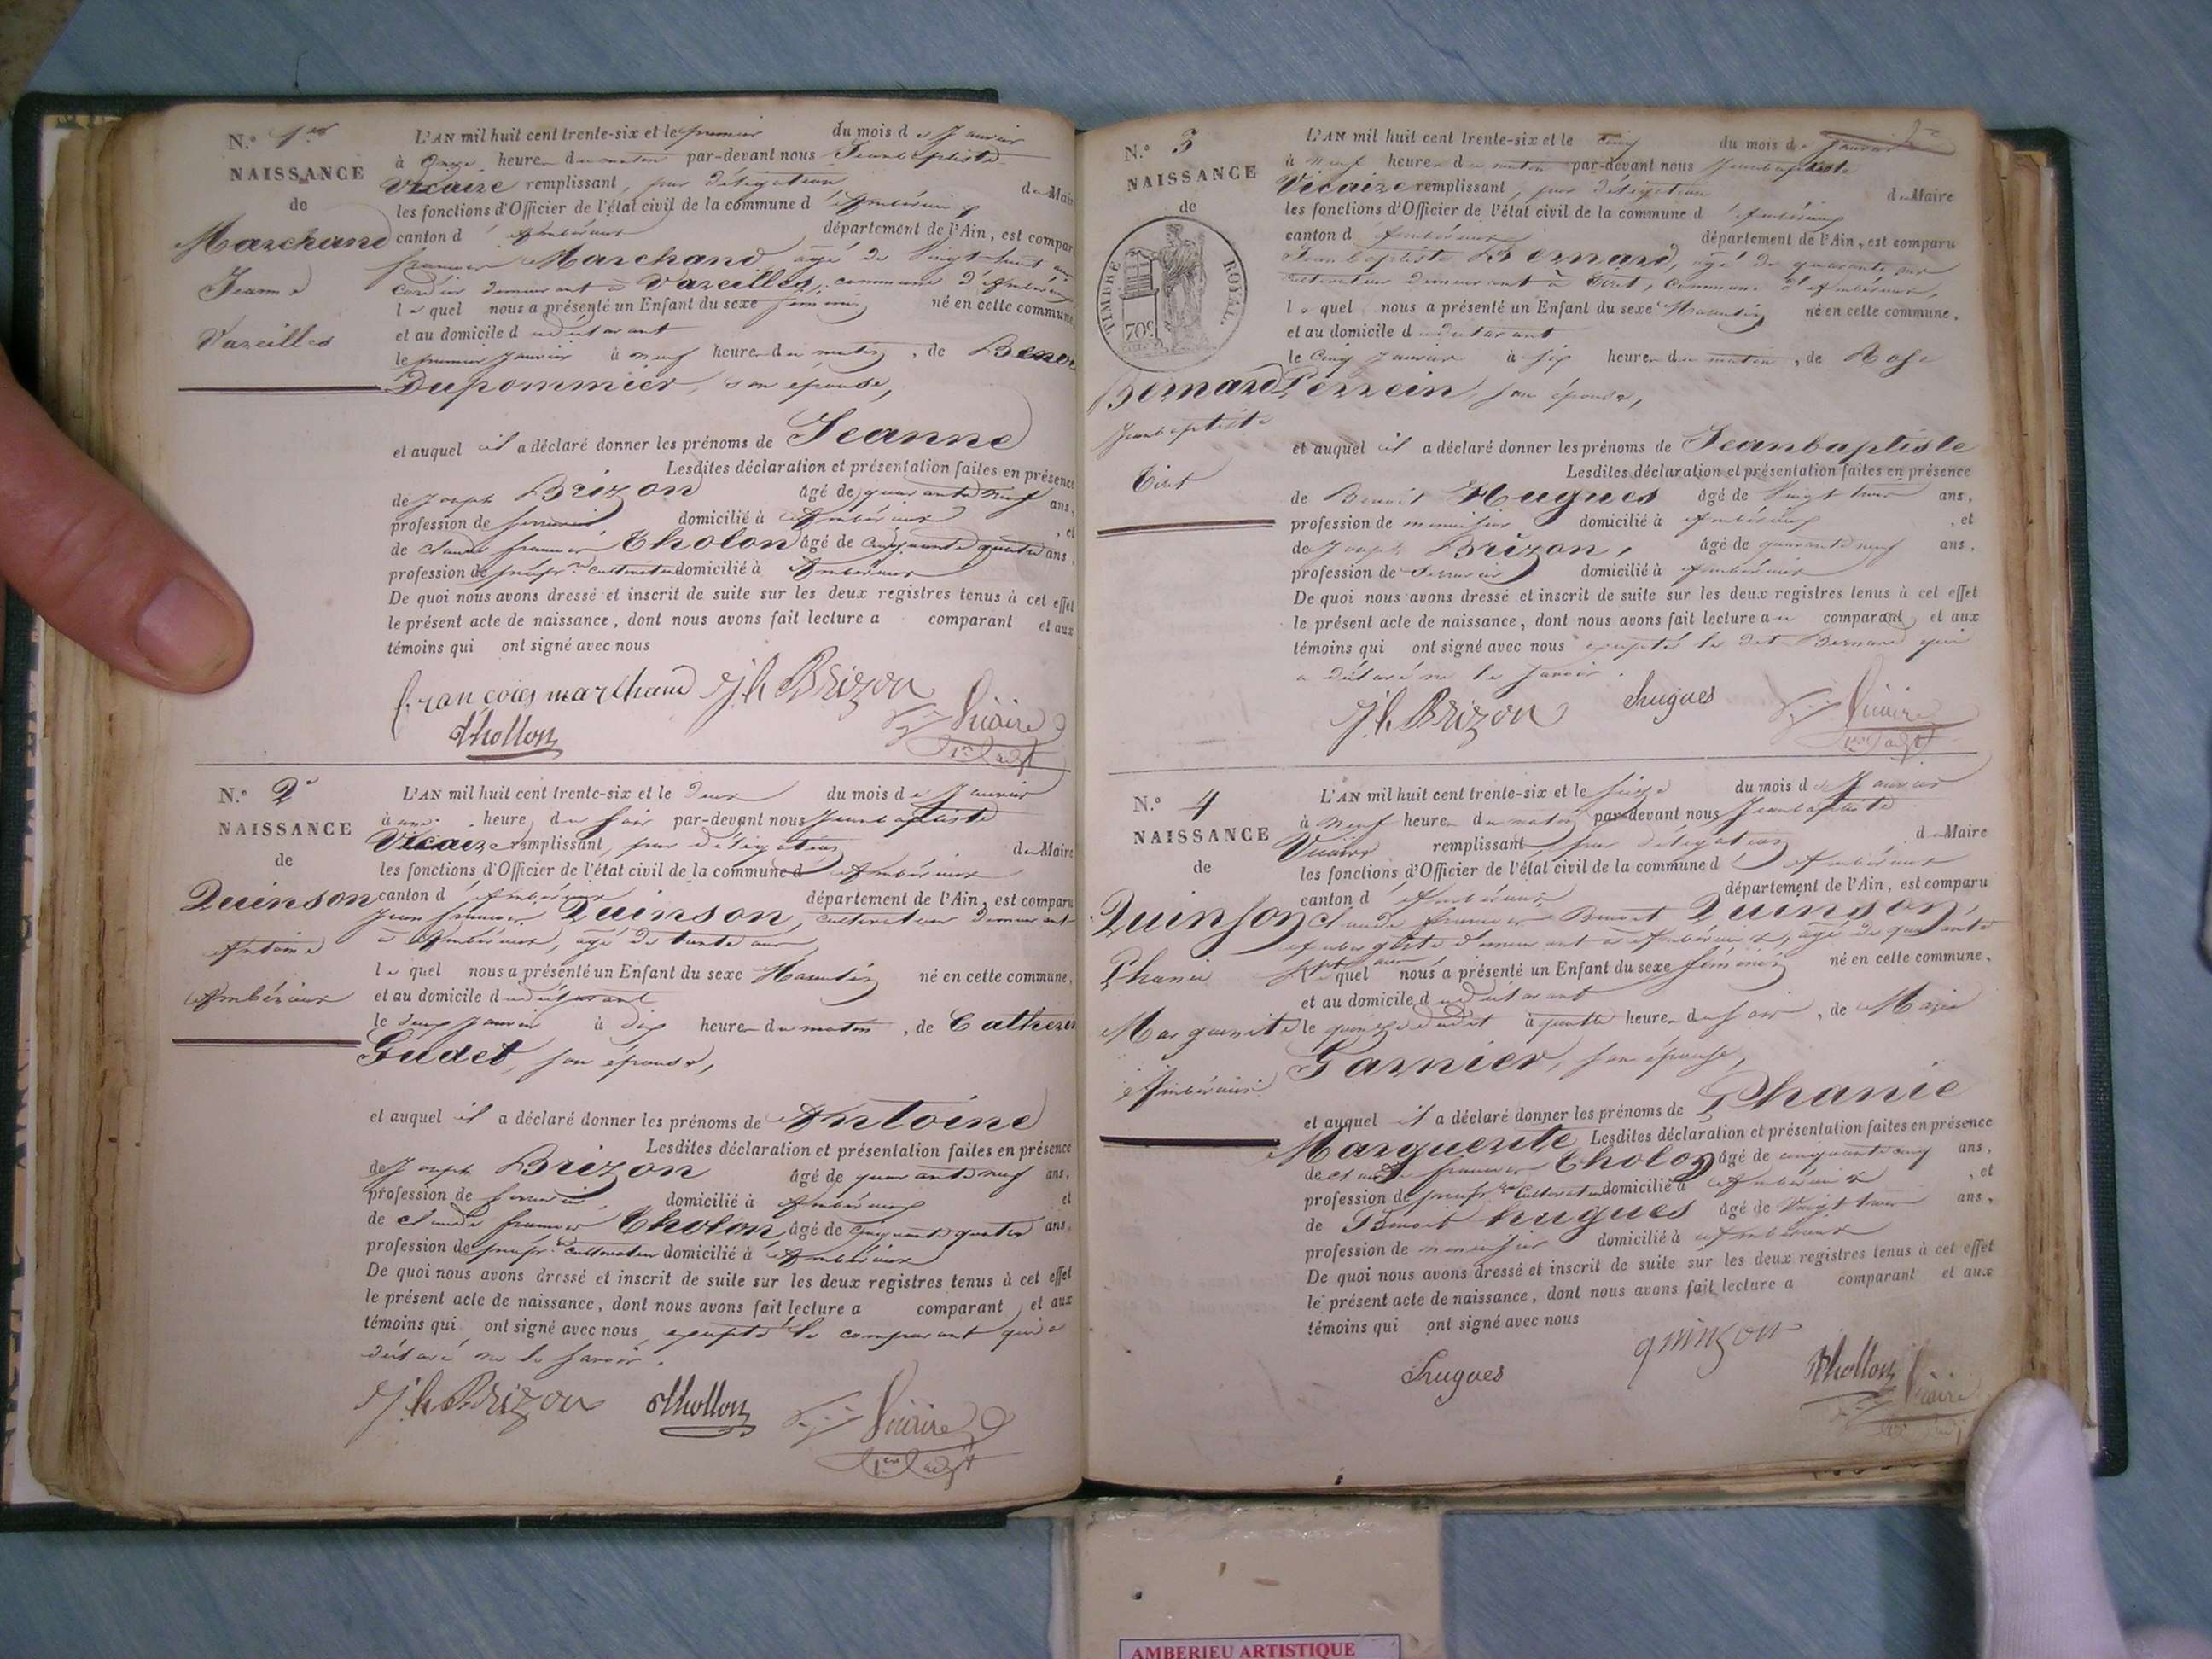 N.º 1.er
NAISSANCE
de
Marchand
Jeanne
Vareilles
L'AN mil huit cent trente-six et le premier du mois de Janvier
à onze heures du matin par-devant nous Jeanbaptiste
Vicaire remplissant, par délégation du Maire
les fonctions d'Officier de l'état civil de la commune d'Ambérieux
canton d'Ambérieux département de l'Ain, est comparu
françois Marchand âgé de Vingt huit ans
cordier demeurant à Vareilles, commune d'Ambérieux
lequel nous a présenté un Enfant du sexe féminin né en cette commune,
et au domicile du déclarant
le premier Janvier à neuf heures du matin, de Benoi
Dupommier, son épouse,
et auquel il a déclaré donner les prénoms de Jeanne
Lesdites déclaration et présentation faites en présence
de Joseph Brizon âgé de quarante neuf ans,
profession de serrurier domicilié à Ambérieux, et
de Claude françois Tholon âgé de cinquante quatre ans,
profession de cultivateur domicilié à Ambérieux
De quoi nous avons dressé et inscrit de suite sur les deux registres tenus à cet effet
le présent acte de naissance, dont nous avons fait lecture a comparant et aux
témoins qui ont signé avec nous
françois marchand Jh Brizon
Thollon
Vicaire
N.º 2
NAISSANCE
de
Quinson
Antoine
Ambérieux
L'AN mil huit cent trente-six et le deux du mois de Janvier
à une heure du soir par-devant nous Jeanbaptiste
Vicaire remplissant, par délégation du Maire
les fonctions d'Officier de l'état civil de la commune d'Ambérieux
canton d'Ambérieux département de l'Ain, est comparu
Jean françois Quinson, cultivateur demeurant
à Ambérieux, âgé de trente ans
lequel nous a présenté un Enfant du sexe Masculin né en cette commune,
et au domicile du déclarant
le deux Janvier à dix heures du matin, de Catherin
Gudet, son épouse,
et auquel il a déclaré donner les prénoms de Antoine
Lesdites déclaration et présentation faites en présence
de Joseph Brizon âgé de quarante neuf ans,
profession de serrurier, domicilié à Ambérieux et
de Claude françois Tholon, âgé de cinquante quatre ans,
profession de cultivateur domicilié à Ambérieux
De quoi nous avons dressé et inscrit de suite sur les deux registres tenus à cet effet
le présent acte de naissance, dont nous avons fait lecture a comparant, et aux
témoins qui ont signé avec nous, excepté le comparant qui a
déclaré ne le savoir.
Jh Brizon Thollon Vicaire
N.º 3
NAISSANCE
de
TIMBRE ROYAL.
70c
Bernard
Jeanbaptiste
Tiret
L'AN mil huit cent trente-six et le cinq du mois de Janvier
à neuf heures du matin par-devant nous Jeanbaptiste
Vicaire remplissant, par délégation du Maire
les fonctions d'Officier de l'état civil de la commune d'Ambérieux
canton d'Ambérieux département de l'Ain, est comparu
Jeanbaptiste Bernard, âgé de quarante ans
cultivateur demeurant à Tiret, commune d'Ambérieux,
lequel nous a présenté un Enfant du sexe Masculin né en cette commune,
et au domicile du déclarant
le cinq Janvier à six heures du matin, de Rose
Perrein, son épouse,
et auquel il a déclaré donner les prénoms de Jeanbaptiste
Lesdites déclaration et présentation faites en présence
de Benoit Hugues âgé de Vingt trois ans,
profession de menuisier domicilié à Ambérieux, et
de Joseph Brizon, âgé de quarante neuf ans,
profession de serrurier domicilié à Ambérieux
De quoi nous avons dressé et inscrit de suite sur les deux registres tenus à cet effet
le présent acte de naissance, dont nous avons fait lecture au comparant, et aux
témoins qui ont signé avec nous excepté le dit Bernard qui
a déclaré ne le savoir.
Jh Brizon hugues Vicaire
N.º 4
NAISSANCE
de
Quinson
Phanie
Marguerite
Ambérieux
L'AN mil huit cent trente-six et le seize du mois de Janvier
à neuf heures du matin par-devant nous Jeanbaptiste
Vicaire remplissant par délégation du Maire
les fonctions d'Officier de l'état civil de la commune d'Ambérieux
canton d'Ambérieux département de l'Ain, est comparu
Claude françois Benoit Quinson,
aubergiste demeurant à Ambérieux, âgé de quarante
sept ans lequel nous a présenté un Enfant du sexe féminin né en cette commune,
et au domicile du déclarant
le quinze dudit à quatre heures du soir, de Marie
Garnier, son épouse,
et auquel il a déclaré donner les prénoms de Phanie
Marguerite Lesdites déclaration et présentation faites en présence
de Claude françois Tholon âgé de cinquante cinq ans,
profession de cultivateur domicilié à Ambérieux, et
de Benoit hugues âgé de Vingt trois ans,
profession de menuisier domicilié à Ambérieux
De quoi nous avons dressé et inscrit de suite sur les deux registres tenus à cet effet
le présent acte de naissance, dont nous avons fait lecture a comparant et aux
témoins qui ont signé avec nous
hugues quinson Thollon Vicaire
AMBERIEU ARTISTIQUE